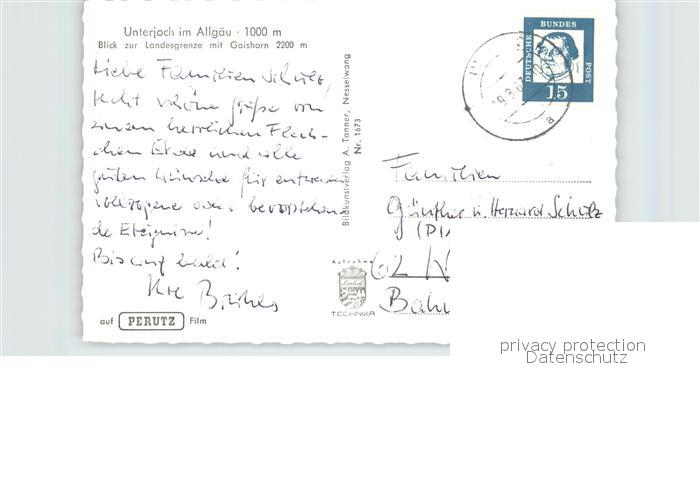 Unterjoch im Allgäu · 1000 m
Blick zur Landesgrenze mit Gaishorn 2200 m
Liebe Familien Schulz,
recht schöne Grüße von
einem herrlichen Fleck-
chen Erde und alle
guten Wünsche für entweder
vollzogene oder bevorstehen-
de Ereignisse!
Bis auf bald!
Ihre
auf PERUTZ Film
Bildkunstverlag A. Tanner, Nesselwang
Nr. 1673
DEUTSCHE BUNDES POST
15
a
Familien
Günther u. Hermann Schulz
62 W
Bahn
Aufnahme
Linhof
TECHNIKA
privacy protection
Datenschutz